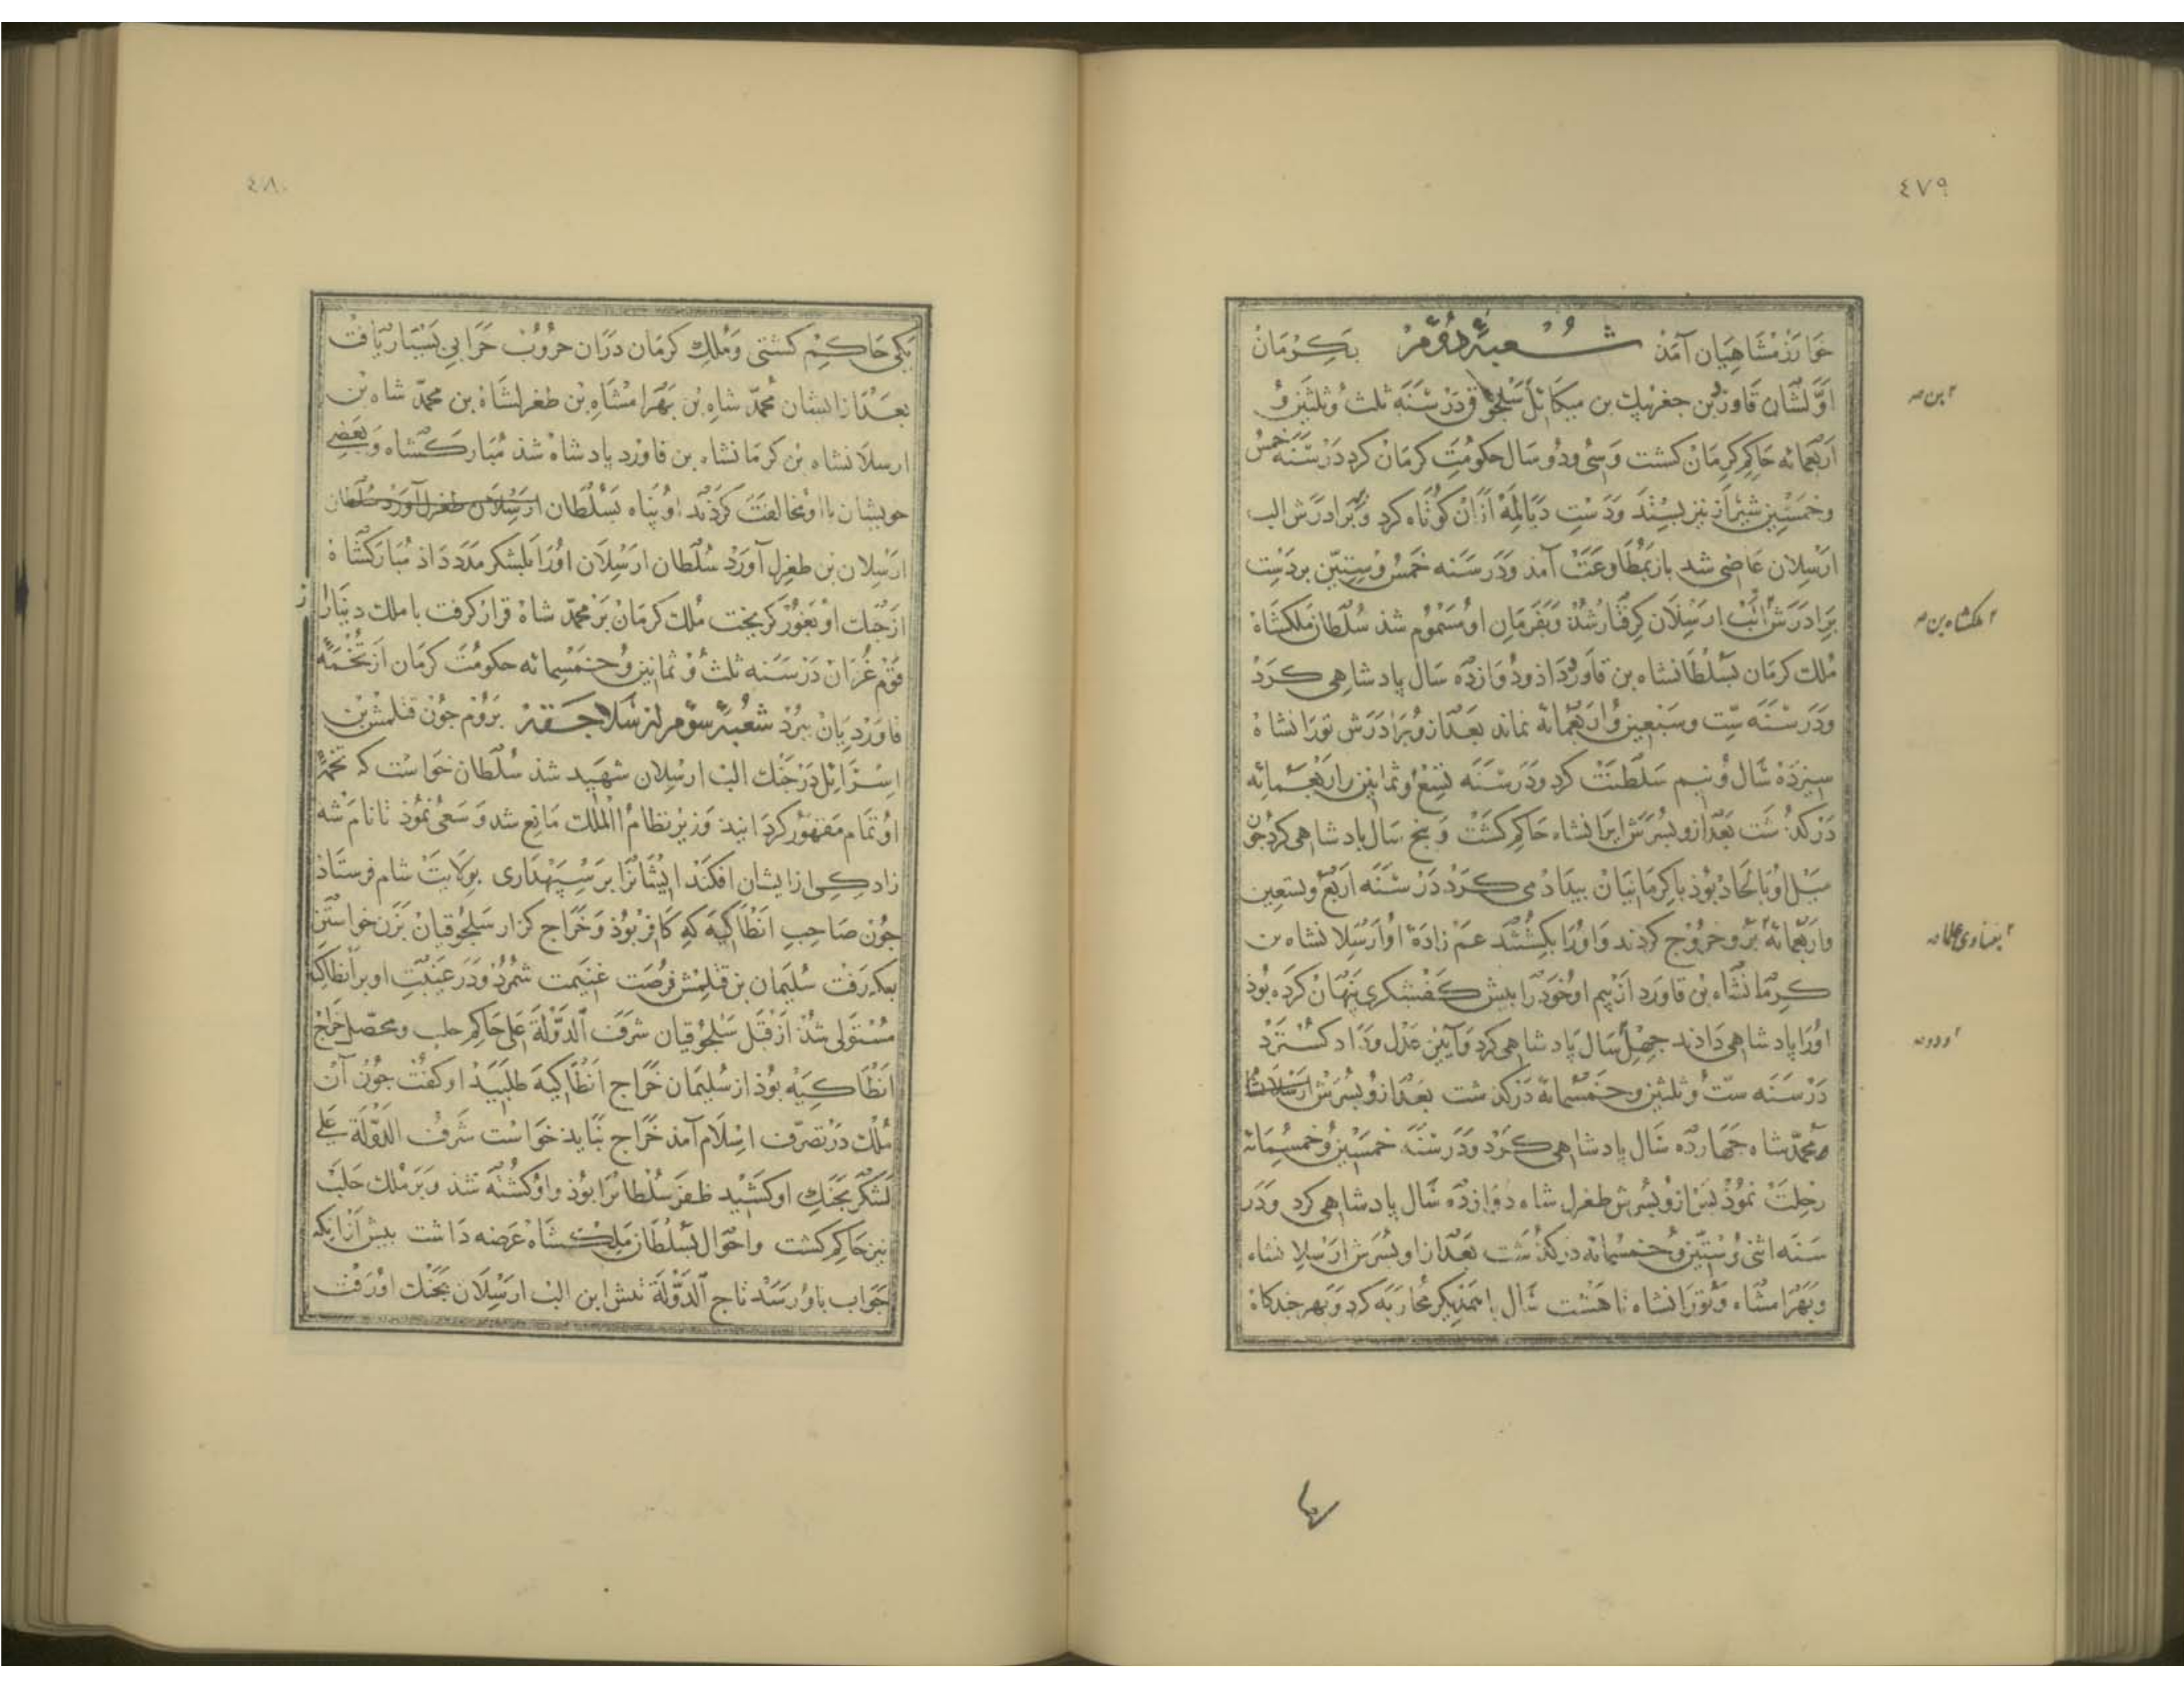 ٤٧٩
خوارزمشاهیان آمذ شعبهٔ دوّم بکرمان
اوّلشان قاورد بن جغربیک بن میکائل سلجوق در سنه ثلث و ثلثین و
اربعمائه حاکم کرمان کشت و سی و دو سال حکومت کرمان کرد در سنه خمس
و خمسین شیراز نیز بستد و دست دیالمه ازان کوتاه کرد و با برادرش الب
ارسلان عاصی شد باز بمطاوعت آمد و در سنه خمس و ستین بر دست
برادرش الب ارسلان کرفتار شد و بفرمان او مسموم شذ سلطان ملکشاه
ملک کرمان بسلطانشاه بن قاورد داذ و دوازده سال پادشاهی کرد
و در سنه ست و سبعین و اربعمائة نماند بعد ازو برادرش تورانشاه
سیزده سال و نیم سلطنت کرد و در سنه تسع و ثمانین و اربعمائه
درکذشت بعد ازو پسرش ایرانشاه حاکم کشت و پنج سال پادشاهی کرد جون
میل او با الحاد بوذ با کرمانیان بیداد می کرد در سنه اربع و تسعین
و اربعمائة برو خروج کردند و او را بکشتند عم زادهٔ او ارسلانشاه بن
کرمانشاه بن قاورد از بیم او خود را بیش کفشکری پنهان کرده بوذ
او را پادشاهی داذند جهل سال پادشاهی کرد و آیین عدل و داد کسترد
در سنه ست و ثلثین و خمسمائة درکذشت بعد ازو پسرش ارسلانشا
محمدشاه جهارده سال پادشاهی کرد و در سنه خمسین و خمسمائة
رحلت نموذ پس ازو پسرش طغرل شاه دوازده سال پادشاهی کرد و در
سنه اثنی و ستین و خمسمائه درکذشت بعد ازو پسرش ارسلانشاه
و بهرامشاه و تورانشاه تا هشت سال با همدیکر محاربه کرد و بهر جندکاه
۲ بن
۲ ملکشاه بن
٤٨٠
یکی حاکم کشتی و ملک کرمان دران حروب خرابی بسیار یافت
بعد از ایشان محمّد شاه بن بهرامشاه بن طغرلشاه بن محمّد شاه بن
ارسلانشاه بن کرمانشاه بن قاورد پادشاه شذ مبارکشاه و بعضی
خویشان با او مخالفت کردند او پناه بسلطان ارسلان طغرل آورد سلطان
ارسلان بن طغرل آورد سلطان ارسلان او را بلشکر مدد داذ مبارکشاه
از جنک او بغور کریخت ملک کرمان بر محمّد شاه قرار کرفت با ملک دینار از
قوم غزان در سنه ثلث و ثمانین و خمسمائه حکومت کرمان از تخمهٔ
قاوردیان ببرد شعبهٔ سوّم از سلاجقه بروم جون قتلمش بن
اسرائل در جنک الب ارسلان شهید شذ سلطان خواست که تخمهٔ
او تمام مقهور کرداینذ وزیر نظام الملک مانع شد و سعی نموذ تا نام شه
زادکی از ایشان افکند ایشانرا بر سپهداری بولایت شام فرستاذ
جون صاحب انطاکیه که کافر بوذ و خراج کزار سلجوقیان بزن خواستن
بمکه رفت سلیمان بن قتلمش فرصت غنیمت شمرد و در غیبت او بر انطاکیه
مستولی شذ از قبل سلجوقیان شرف الدّولة علی حاکم حلب و محصل خراج
انطاکیه بوذ از سلیمان خراج انطاکیه طلبید او کفت جون آن
ملک در تصرّف اسلام آمذ خراج نبایذ خواست شرف الدولة علی
لشکر بجنک او کشید ظفر سلطانرا بوذ و او کشته شذ و بر ملک حلب
نیز حاکم کشت و احوال بسلطان ملکشاه عرضه داشت بیش ازانکه
جواب باو رسذ تاج الدّولة تتش ابن الب ارسلان بجنک او رفت